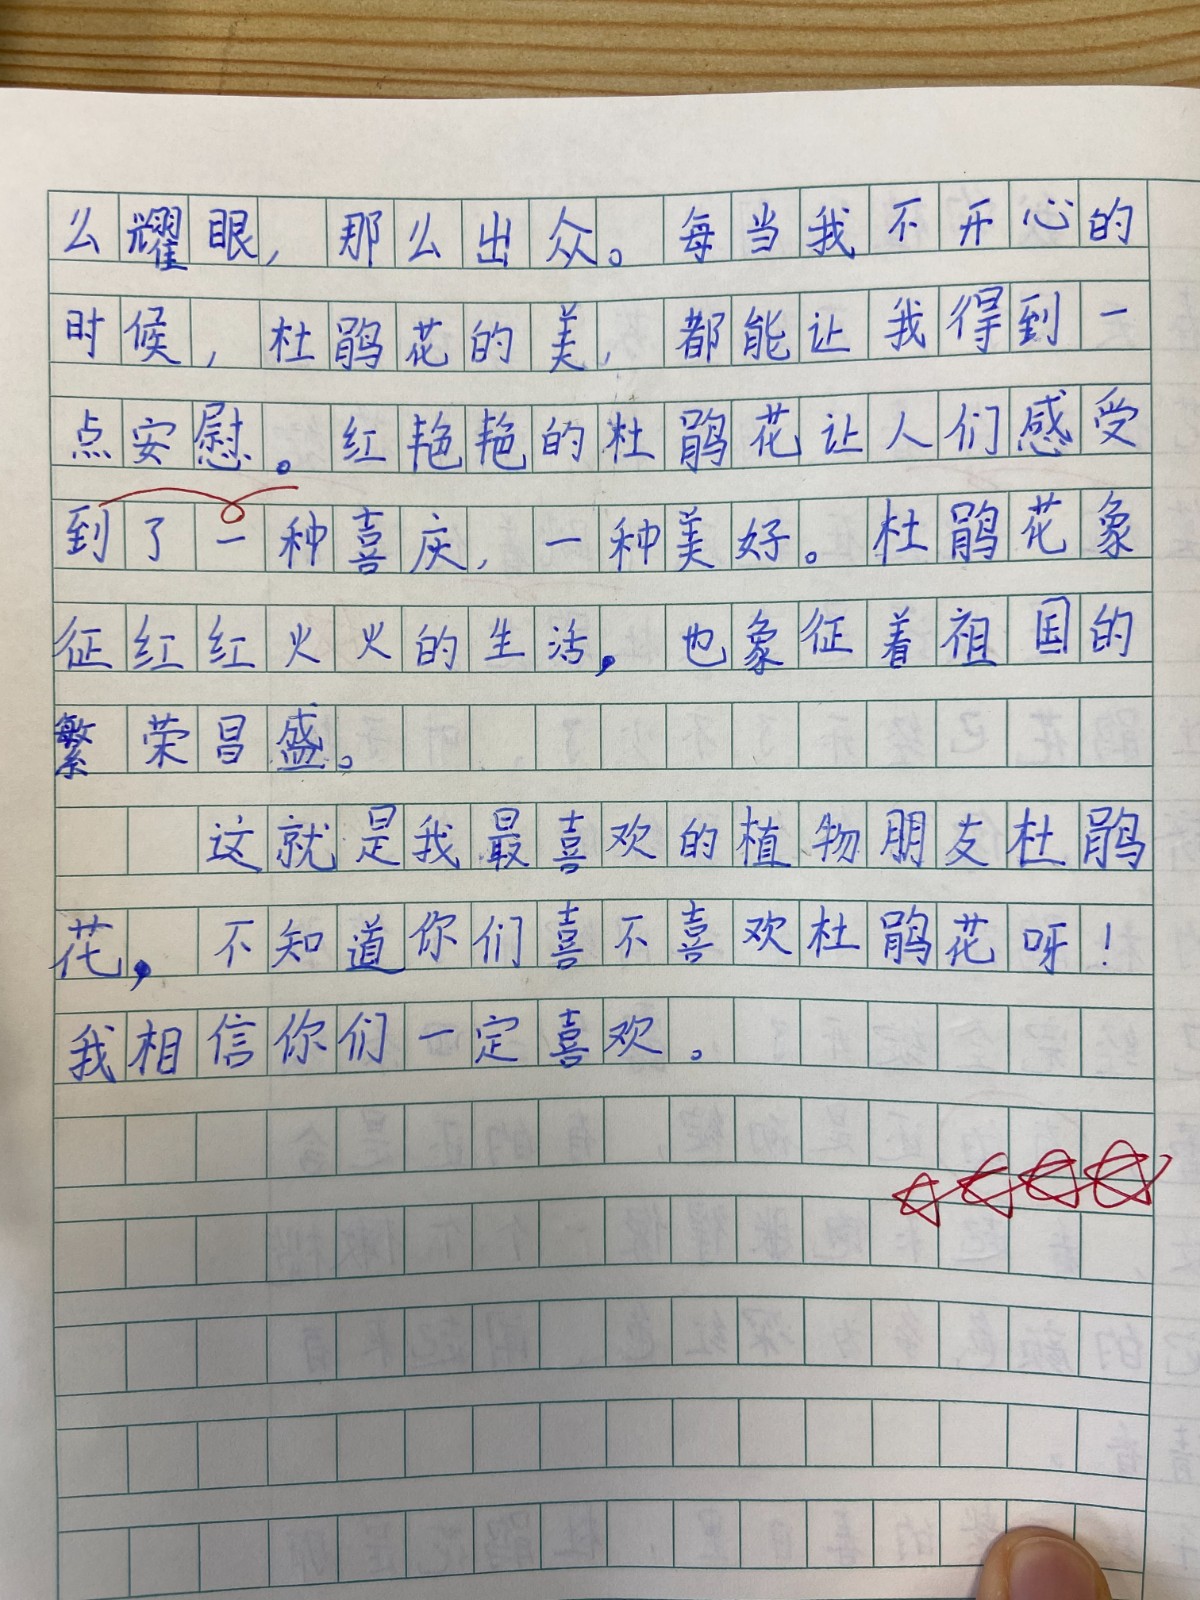 么耀眼，那么出众。每当我不开心的
时候，杜鹃花的美，都能让我得到一
点安慰。红艳艳的杜鹃花让人们感受
到了一种喜庆，一种美好。杜鹃花象
征红红火火的生活，也象征着祖国的
繁荣昌盛。
这就是我最喜欢的植物朋友杜鹃
花，不知道你们喜不喜欢杜鹃花呀！
我相信你们一定喜欢。